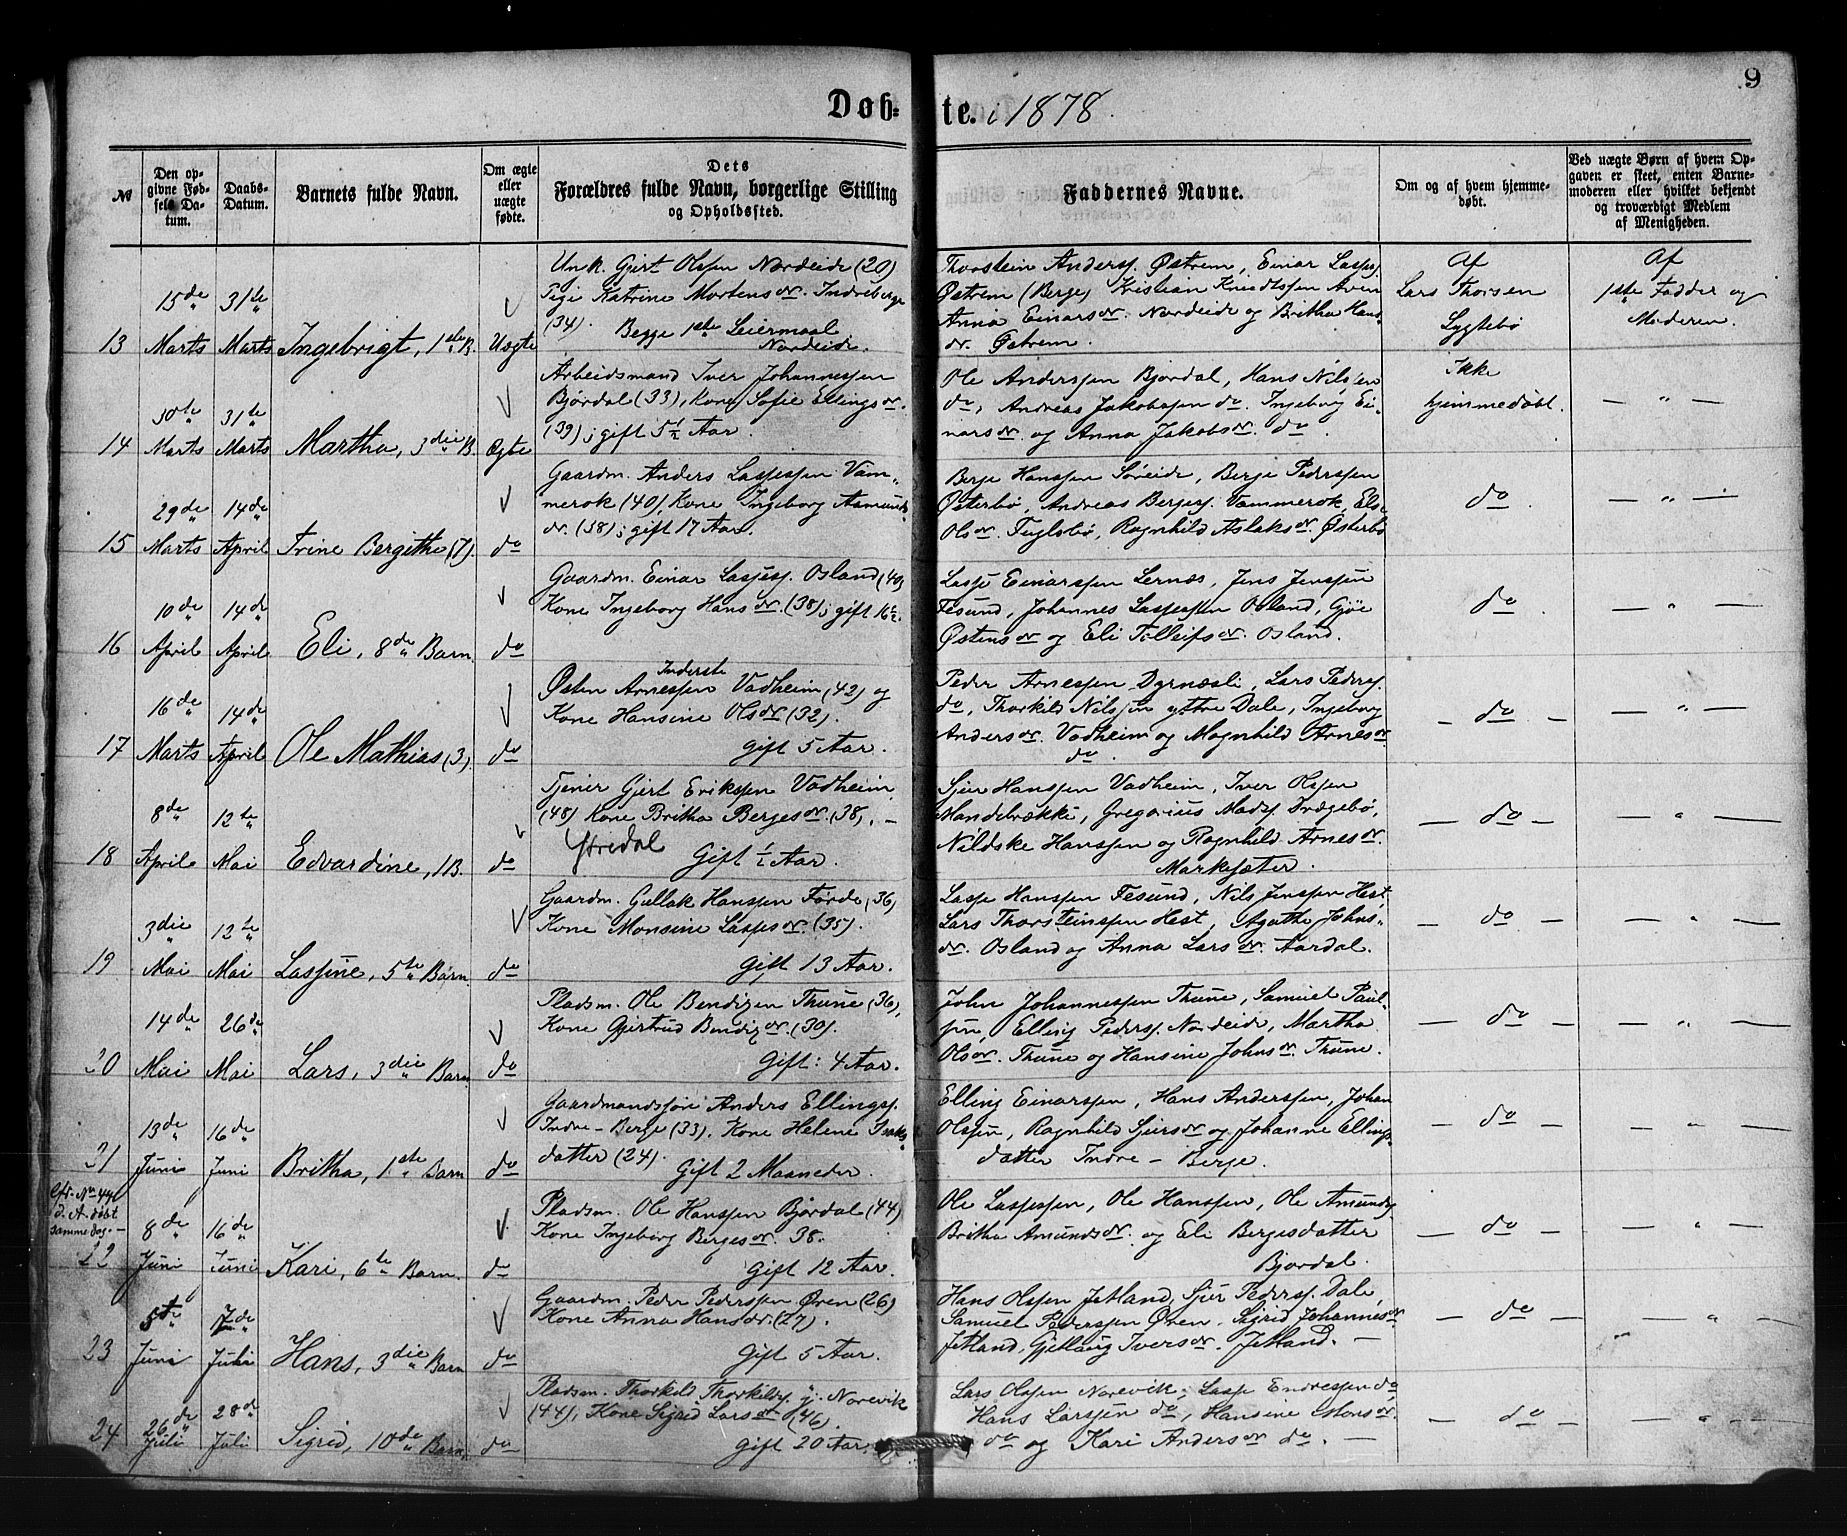 9
Døb= te. i 1878.
№
Den opgivne Fødsels Datum.
Daabs-Datum.
Barnets fulde Navn.
Om ægte eller uægte fødte.
Dets Forældres fulde Navn, borgerlige Stilling og Opholdssted.
Faddernes Navne.
Om og af hvem hjemmedøbt.
Ved uægte Børn af hvem Opgaven er skeet, enten Barnemoderen eller hvilket bekjendt og troværdigt Medlem af Menigheden.
13
15de Marts
31te Marts
Ingebrigt, 1ste B.
Uægte
Unk. Gjert Olssen Nordeide (20)
Pige Katrine Mortensdr. Indreberge
(34). Begge 1ste Leiermaal
Nordeide.
Thorstein Anderss. Østrem, Einar Lasses.
Østrem (Berge) Kristian Knudtssen Aven
Anna Einarsdr. Nordeide og Britha Hans
dr. Østrem.
Af
Lars Thorsen
Lygtebø
Af
1ste Fadder og
Moderen.
14
30te Marts
31te Marts
Martha, 3die B.
Ægte
Arbeidsmand Iver Johannessen
Bjørdal (33), Kone Sofie Ellingsdr.
(39); gift 5½ Aar.
Ole Anderssen Bjordal, Hans Nilssen
do, Andreas Jakobssen do. Ingeborg Ei-
narsdr. og Anna Jakobsdr. do.
Ikke
hjemmedøbt.
— " —
15
29de Marts
14de April
Trine Bergithe (7).
do
Gaardm. Anders Lassessen Vam-
merok (40), Kone Ingeborg Aamunds
dr. (38); gift 17 Aar.
Berge Hanssen Søreide, Berge Pederssen
Østerbø, Andreas Bergess. Vammerok, Else
Olsdr. Fuglebø, Ragnhild Aslaksdr. Østerbø
do
— " —
16
10de April
14de April
Eli, 8de Barn
do
Gaardm. Einar Lassess. Osland (40)
Kone Ingeborg Hansdr. (38); gift 16½.
Lasse Einarssen Lernæs, Jens Jenssen
Fesund, Johannes Lassessen Osland, Gjøe
Østensdr og Eli Tolleifsdr. Osland.
do.
— " —
17
16de Marts
14de April
Ole Mathias (3).
do
Inderste
Østen Arnessen Vadheim (42) og
Kone Hansine Olsdr (32).
gift 5 Aar.
Peder Arnessen Dyrnæsli, Lars Peders.
do, Thorkild Nilssen ytre Dale, Ingeborg
Andersdr. Vadheim og Magnhild Arnesdr.
do.
— do —
— " —
18
8de April
12te Mai
Edvardine, 1 B.
do
Tjener Gjert Erikssen Vadheim
(48) Kone Britha Bergesdr. (38). —
Ytredal Gift ½ Aar.
Sjur Hanssen Vadheim, Iver Olssen
Mandebrække, Gregorius Madss. Drægebø,
Nildske Hanssen og Ragnhild Arnesdr.
Markesæter.
— do —
— " —
19
3die Mai
12te Mai
Lassine, 5te Barn
do
Gaardm. Gullak Hanssen Førde (36)
Kone Monsine Lassesdr. (35).
Gift 13 Aar.
Lasse Hanssen Fesund, Nils Jenssen Hest,
Lars Thorsteinssen Hest, Agathe Johns-
dr. Osland og Anna Larsdr. Aardal.
— do —
— " —
20
14de Mai
26de Mai
Lars, 3die Barn
do
Pladsm. Ole Bendixen Thune (36),
Kone Gjertrud Bendixdr. (30).
Gift: 4 Aar.
John Johannessen Thune, Samuel Paul-
sen, Elling Pederss. Nordeide, Martha
Olsdr. Thune og Hansine Johnsdr. Thune.
— do —
— " —
21
13de Juni
16de Juni
Britha, 1ste Barn
do
Gaardmandssøn Anders Ellingss.
Indre-Berge (33). Kone Helene Isaks
datter (24). Gift 2 Maaneder.
Elling Einarssen, Hans Anderssen, Johan
Olssen, Ragnhild Sjursdr og Johanne Ellings-
datter Indre-Berge.
— do —
— " —
cfr. No 44
d. A. døbt
samme dag. —
22
8de Juni
16de Juni
Kari, 6te Barn.
do
Pladsm. Ole Hanssen Bjørdal (44)
Kone Ingeborg Bergesdr. 38.
Gift 12 Aar.
Ole Lassessen, Ole Hanssen, Ole Amunds.
Britha Amundsdr. og Eli Bergesdatter
Bjordal.
— do —
— " —
23
5te Juni
7de Juli
Hans, 3die Barn
do
Gaardm. Peder Pederssen Øren (26)
Kone Anna Hansdr. (27).
Gift 5 Aar.
Hans Olssen Jetland, Sjur Pederss. Dale,
Samuel Pederssen Øren. Sigrid Johannesdr
Jetland, Gjetlaug Iversdr. Jetland. —
— do —
— " —
24
26de Juli
28de Juli
Sigrid, 10de Barn
do
Pladsm. Thorkild Thorkildss. j. Norevik
(44), Kone Sigrid Larsdr (46).
gift 20 Aar.
Lars Olssen Norevik, Lasse Endressen do,
Hans Larssen do, Hansine Monsdr.
do og Kari Andersdr do. —
— do —
— " —